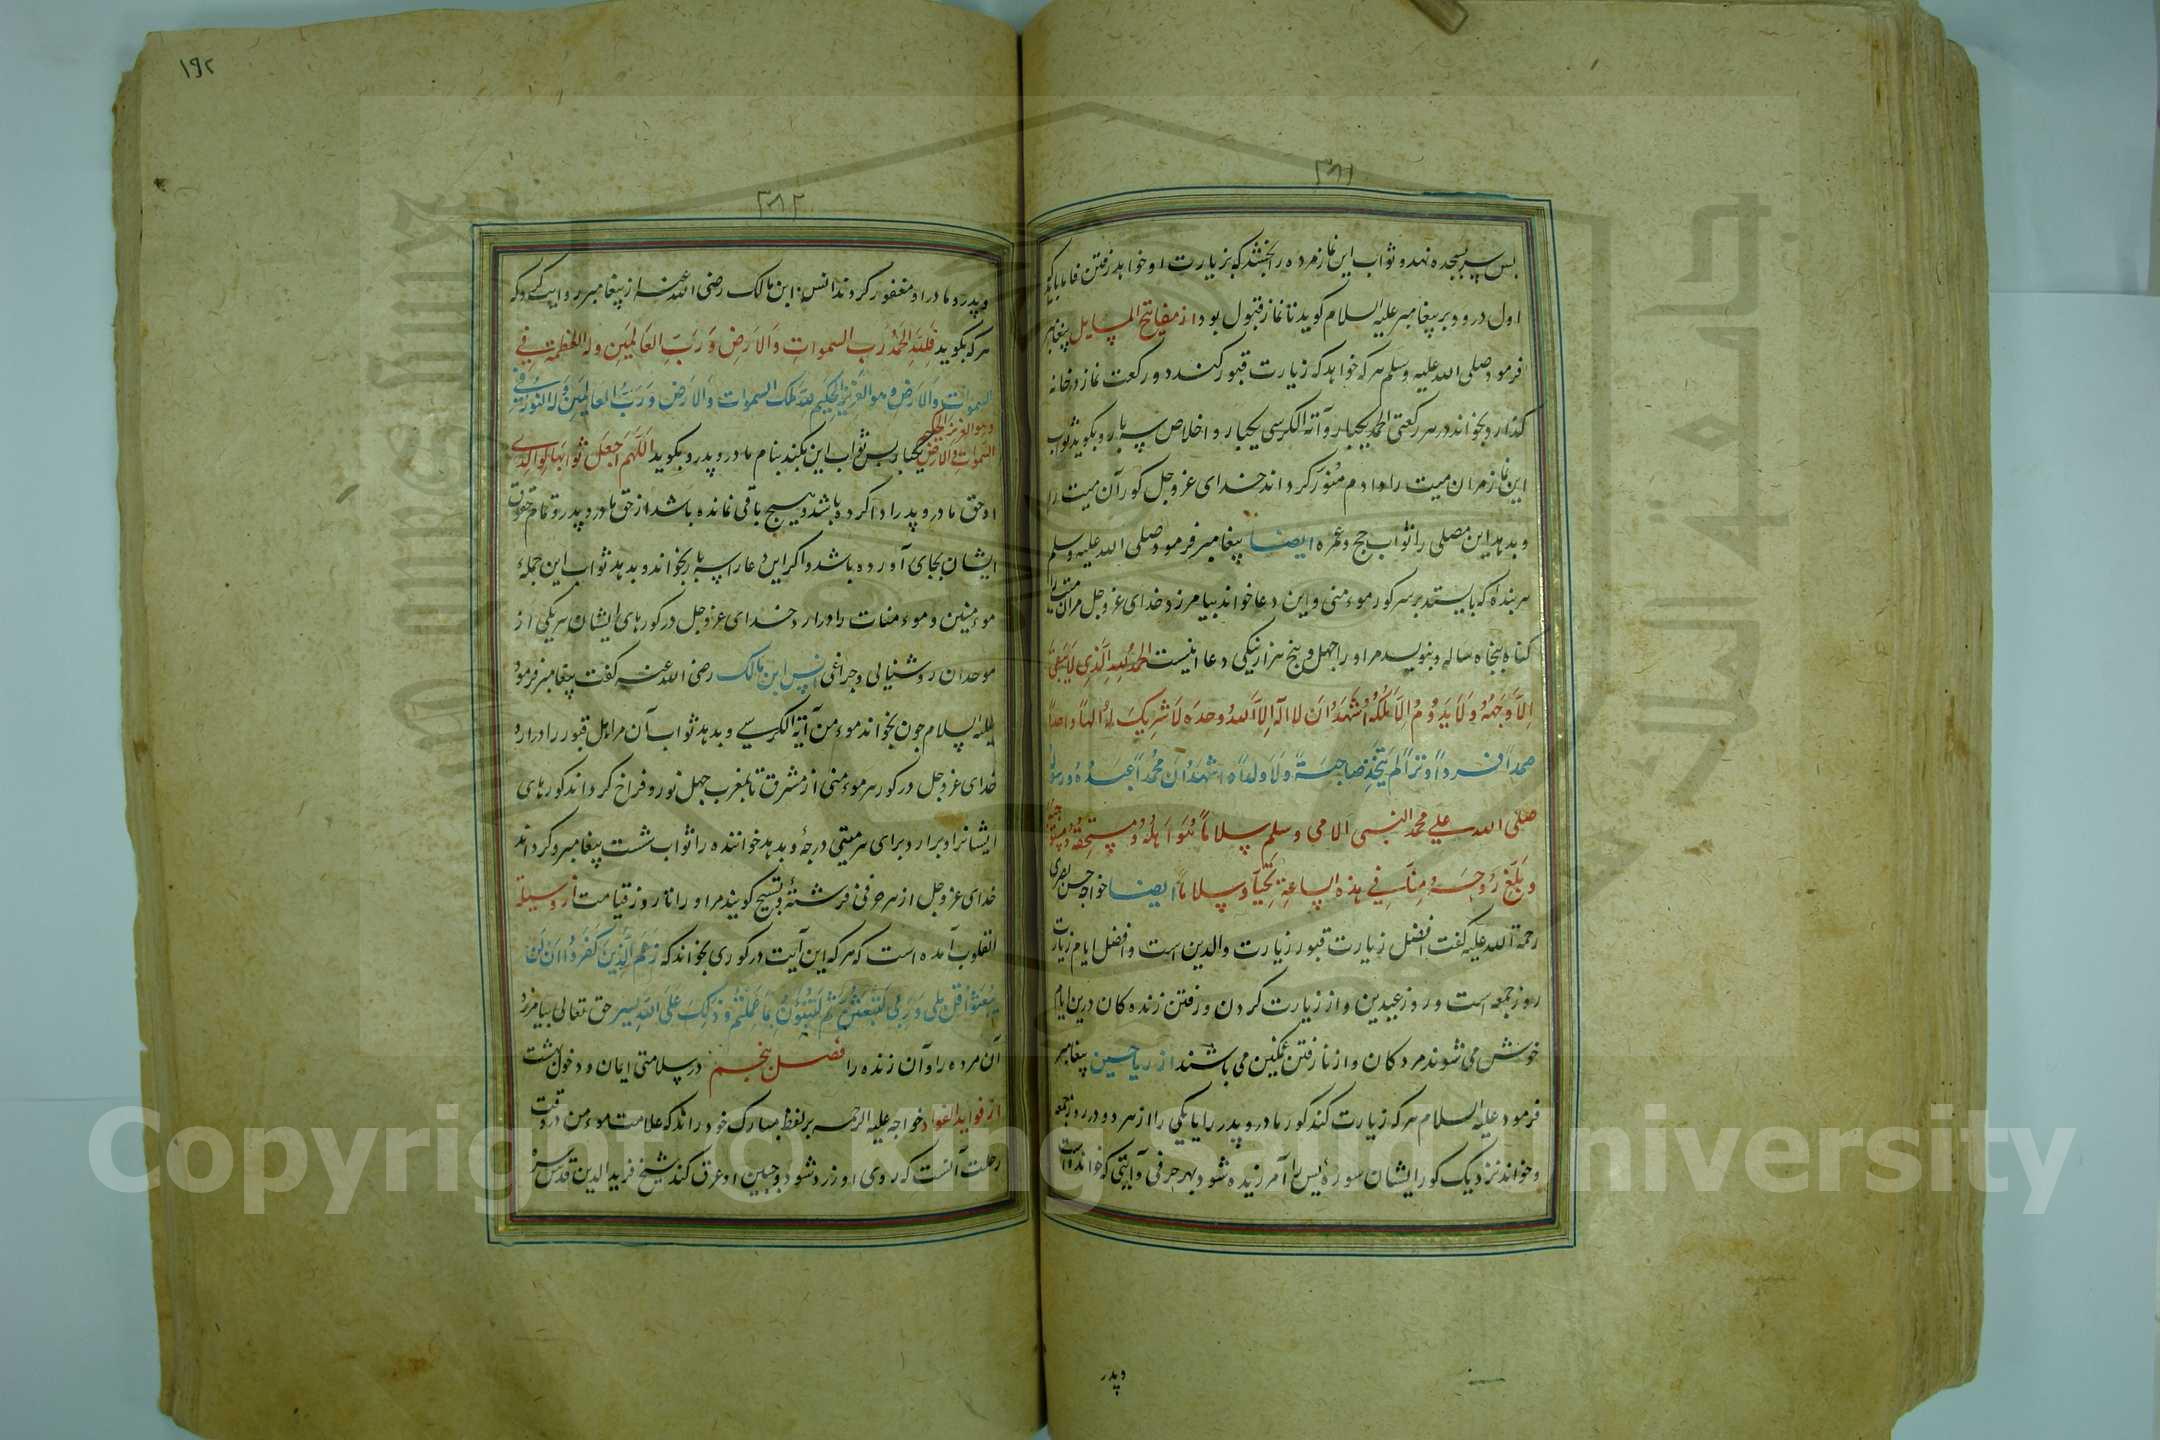 ٣٨١
بس سر بسجده نهد و ثواب این نماز مرده را بخشد که بزیارت او خواهد رفتن فاما باید که
اول درود بر پیغامبر علیه السلام کوید تا نماز قبول بود از مفاتیح المسایل پیغامبر
فرمود صلی الله علیه وسلم هر که خواهد که زیارت قبور کند دو رکعت نماز در خانه
کذارد بخواند در هر رکعتی الحمد یکبار و آیة الکرسی یکبار و اخلاص سه بار و بکوید ثواب
این نماز مران میت را دادم منور کرداند خدای عز و جل کور آن میت را
و بدهد این مصلی را ثواب حج و عمره ایضا پیغامبر فرمود صلی الله علیه وسلم
هر بنده که بایستد بر سر کور موءمنی و این دعا خواند بیامرزد خدای عز و جل مران میت را
کناه پنجاه ساله و بنویسد مر او را چهل و پنج هزار نیکی دعا اینست الحمد لله الذی لا یبقی
الا وجهه ولا یدوم الا ملکه اشهد ان لا اله الا الله وحده لا شریک له الها واحدا
صمدا فردا وترا لم یتخذ صاحبة ولا ولدا و اشهد ان محمدا عبده ورسوله
صلی الله علی محمد النبی الامی وسلم سلاما هو اهله ومستحقه
وبلغ روحه منا فی هذه الساعة تحیة وسلاما ایضا خواجه حسن بصری
رحمة الله علیه کفت افضل زیارت قبور زیارت والدین است و افضل ایام زیارت
روز جمعه است و روز عیدین و از زیارت کردن و رفتن زنده کان درین ایام
خوش می شوند مرده کان و از نارفتن غمکین می باشند از ریاحین پیغامبر
فرمود علیه السلام هر که زیارت کند کور مادر و پدر را یا یکی را از هر دو در روز جمعه
و خواند نزدیک کور ایشان سورۀ یس را آمرزیده شود بهر حرفی و آیتی که خوانده است
و پدر
١٩٢
٣٨٢
و پدر و مادر او مغفور کردند انس ابن مالک رضی الله عنه از پیغامبر روایت کرد که
هر که بکوید فلله الحمد رب السموات والارض ورب العالمین وله العظمة فی
السموات والارض وهو العزیز الحکیم لله ملک السموات والارض ورب العالمین وله النور فی
السموات والارض وهو العزیز الحکیم یکبار بس ثواب این بکند بنام مادر و پدر و بکوید اللهم اجعل ثوابها لوالدی
او حق مادر و پدر ادا کرده باشد و هیچ باقی نمانده باشد از حق مادر و پدر و تمام حقوق
ایشان بجای آورده باشد و اکر این دعا را سه بار بخواند و بدهد ثواب این جمله
موءمنین و موءمنات را در ارد خدای عز و جل در کورهای ایشان هر یکی از
موحدان روشنایی و چراغی انس ابن مالک رضی الله عنه کفت پیغامبر فرمود
علیه السلام چون بخواند موءمن آیة الکرسی و بدهد ثواب آن مر اهل قبور را در ارد
خدای عز و جل در کور هر موءمنی از مشرق تا بمغرب چهل نور و فراخ کرداند کورهای
ایشانرا و برارد برای هر میتی درجۀ و بدهد خواننده را ثواب شست پیغامبر و کرداند
خدای عز و جل از هر حرفی فرشتۀ و تسبیح کویند مر او را تا روز قیامت از وسیلة
القلوب آمده است که هر که این آیت در کوری بخواند که زعم الذین کفروا ان لن
یبعثوا قل بلی وربی لتبعثن ثم لتنبؤن بما عملتم وذلک علی الله یسیر حق تعالی بیامرزد
آن مرده را و آن زنده را فصل پنجم در سلامتی ایمان و دخول بهشت
از فواید الفواد خواجه علیه الرحمه بر لفظ مبارک خود راند که علامت موءمن در وقت
رحلت آنست که روی او زرد شود و جبین او عرق کند شیخ فرید الدین قدس سره
Copyright © King Saud University